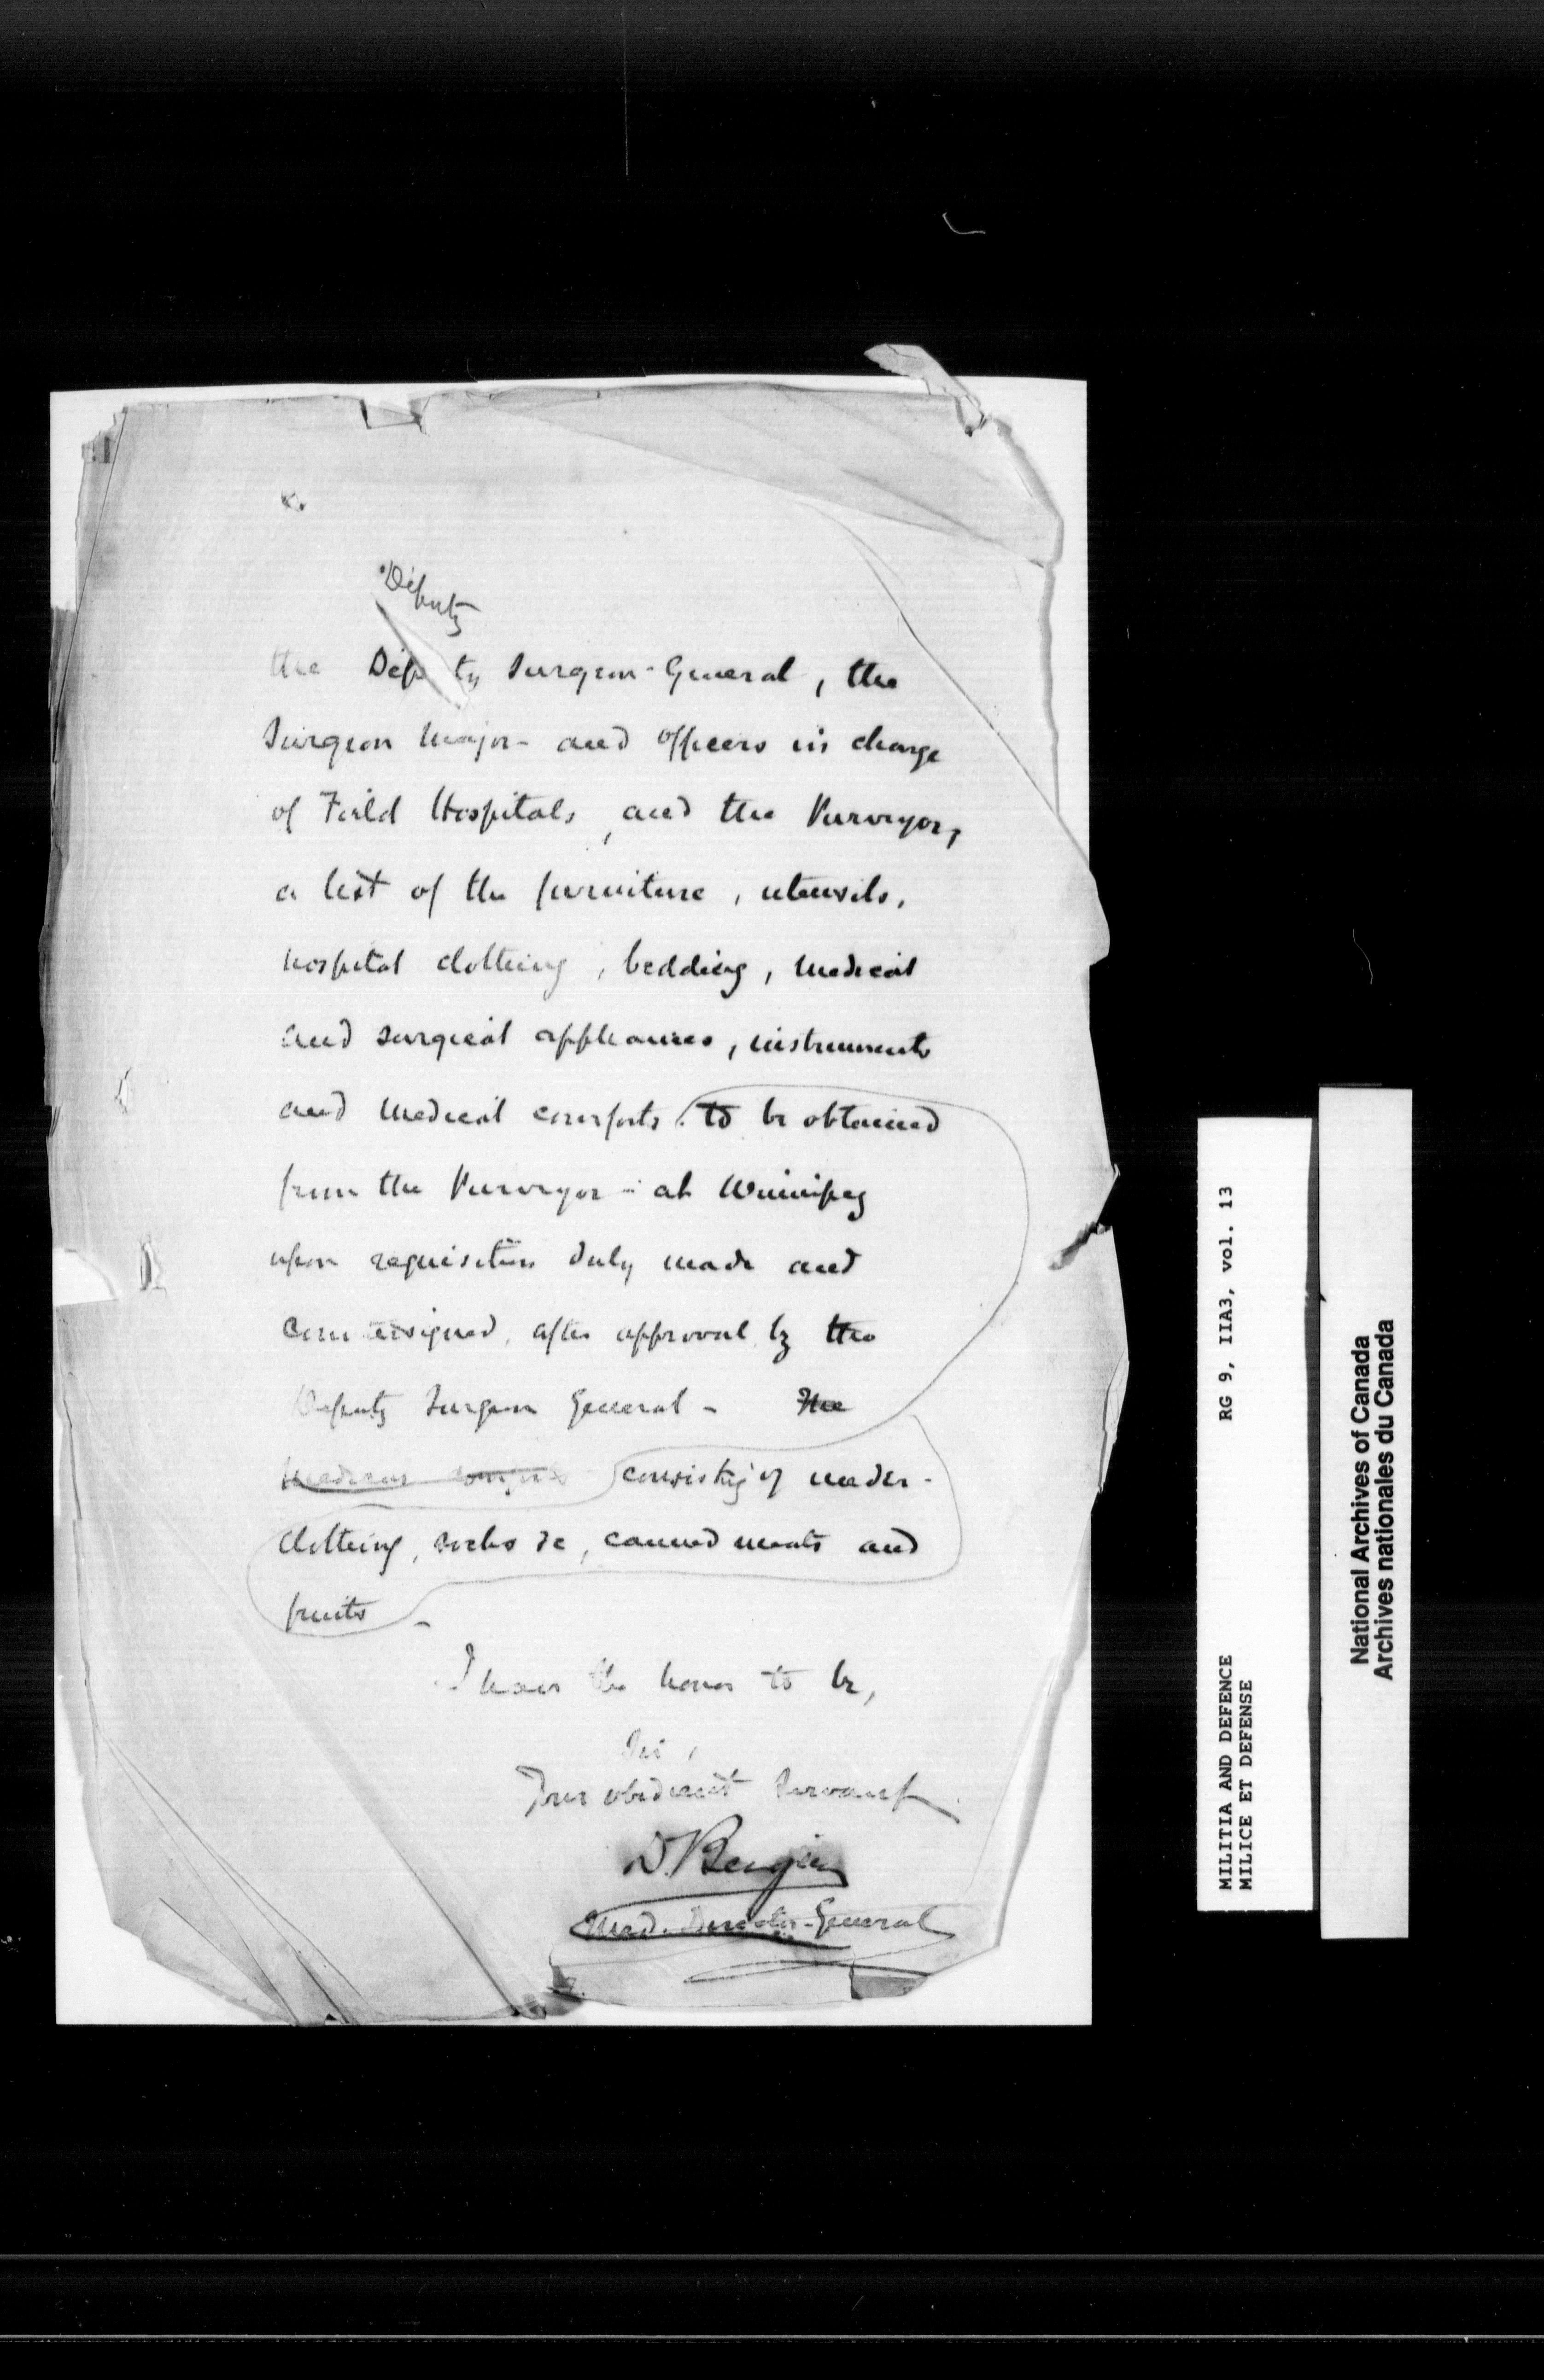 Deputy
the Deputy Surgeon-General, the
Surgeon Major - and officers in charge
of Field Hospitals, and the Purveyor,
a list of the furniture, utensils,
hospital clothing, bedding, medical
and surgical appliances, instruments
and medical comforts. to be obtained
from the Purveyor - at Winnipeg
upon requisition duly made and
countersigned, after approval by the
Deputy Surgeon General - The
medical comforts consisting of under-
clothing, socks &c, canned meats and
fruits -
I have the honor to be,
Sir,
Your obedient Servant
D. Bergin
Med. Director-General
MILITIA AND DEFENCE RG 9, IIA3, vol. 13
MILICE ET DEFENSE
National Archives of Canada
Archives nationales du Canada